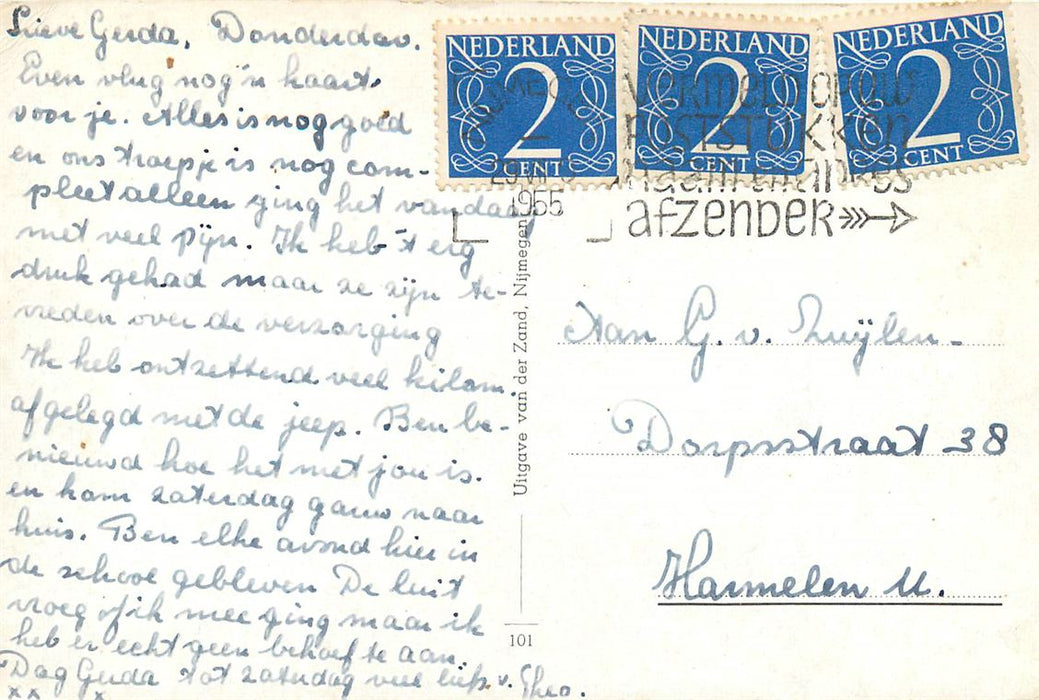 Lieve Gerda, Donderdav.
Even vlug nog 'n kaart
voor je. Alles is nog goed
en ons troepje is nog com-
pleet alleen ging het vandaag
met veel pijn. Ik heb 't erg
druk gehad maar ze zijn te-
vreden over de verzorging
Ik heb ontzettend veel kilom.
afgelegd met de jeep. Ben be-
nieuwd hoe het met jou is.
en kom zaterdag gauw naar
huis. Ben elke avond hier in
de school gebleven De luit
vroeg of ik mee ging maar ik
heb er echt geen behoefte aan.
Dag Gerda tot zaterdag veel liefs v. Theo.
x x x
NEDERLAND
2
CENT
NEDERLAND
2
CENT
NEDERLAND
2
CENT
NIJMEGEN
1955
VERMELD OP UW
POSTSTUKKEN
naam en adres
afzender
Uitgave van der Zand, Nijmegen
101
Aan G. v. Zuijlen -
Dorpsstraat 38
Harmelen U.